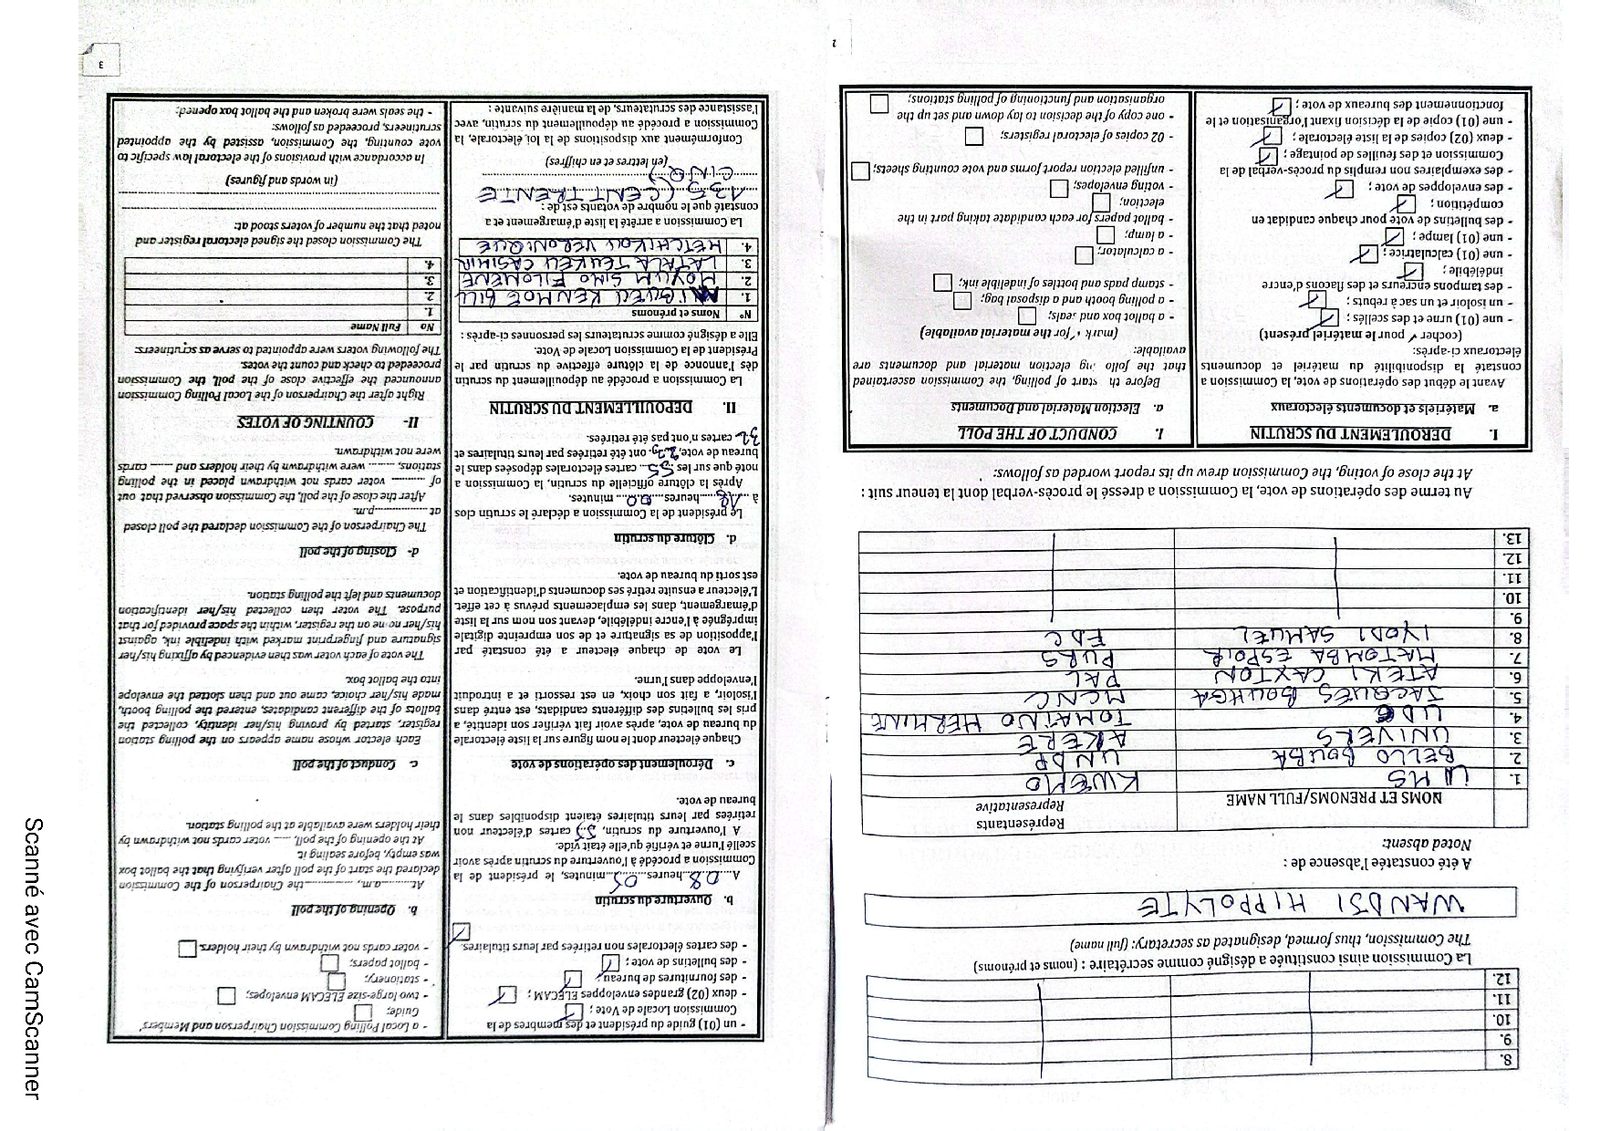 8.
9.
10.
11.
12.
La Commission ainsi constituée a désigné comme secrétaire : (noms et prénoms)
The Commission, thus formed, designated as secretary: (full name)
WANDJI HIPPOLYTE
A été constatée l'absence de :
Noted absent:
NOMS ET PRENOMS/FULL NAME Représentants
Representative
1. UMS KWEMO
2. BELLO BOUBA UNDP
3. UNIVERS AKERE
4. UDC TOMAÏNO HERMINE
5. JACQUES BOUHGA MCNC
6. ATEKI CAXTON PAL
7. MATOMBA ESPOIR PURS
8. IYODI SAMUEL FDC
9.
10.
11.
12.
13.
Au terme des opérations de vote, la Commission a dressé le procès-verbal dont la teneur suit :
At the close of voting, the Commission drew up its report worded as follows:
I. DEROULEMENT DU SCRUTIN
a. Matériels et documents électoraux
Avant le début des opérations de vote, la Commission a
constaté la disponibilité du matériel et documents
électoraux ci-après:
(cocher ✓ pour le matériel présent)
- une (01) urne et des scellés;
- un isoloir et un sac à rebuts ;
- des tampons encreurs et des flacons d'encre
indélébile;
- une (01) calculatrice ;
- une (01) lampe ;
- des bulletins de vote pour chaque candidat en
compétition;
- des enveloppes de vote ;
- des exemplaires non remplis du procès-verbal de la
Commission et des feuilles de pointage ;
- deux (02) copies de la liste électorale ;
- une (01) copie de la décision fixant l'organisation et le
fonctionnement des bureaux de vote ;
I. CONDUCT OF THE POLL
a. Election Material and Documents
Before th start of polling, the Commission ascertained
that the follo ng election material and documents are
available:
(mark ✓ for the material available)
- a ballot box and seals;
- a polling booth and a disposal bag;
- stamp pads and bottles of indelible ink;
- a calculator;
- a lamp;
- ballot papers for each candidate taking part in the
election;
- voting envelopes;
- unfilled election report forms and vote counting sheets;
- 02 copies of electoral registers;
- one copy of the decision to lay down and set up the
organisation and functioning of polling stations;
2
- un (01) guide du président et des membres de la
Commission Locale de Vote ;
- deux (02) grandes enveloppes ELECAM ;
- des fournitures de bureau;
- des bulletins de vote ;
- des cartes électorales non retirées par leurs titulaires.
b. Ouverture du scrutin
A 08 heures 05 minutes, le président de la
Commission a procédé à l'ouverture du scrutin après avoir
scellé l'urne et vérifié qu'elle était vide.
A l'ouverture du scrutin, 55 cartes d'électeur non
retirées par leurs titulaires étaient disponibles dans le
bureau de vote.
c. Déroulement des opérations de vote
Chaque électeur dont le nom figure sur la liste électorale
du bureau de vote, après avoir fait vérifier son identité, a
pris les bulletins des différents candidats, est entré dans
l'isoloir, a fait son choix, en est ressorti et a introduit
l'enveloppe dans l'urne.
Le vote de chaque électeur a été constaté par
l'apposition de sa signature et de son empreinte digitale
imprégnée à l'encre indélébile, devant son nom sur la liste
d'émargement, dans les emplacements prévus à cet effet.
L'électeur a ensuite retiré ses documents d'identification et
est sorti du bureau de vote.
d. Clôture du scrutin
Le président de la Commission a déclaré le scrutin clos
à 18 heures 00 minutes.
Après la clôture officielle du scrutin, la Commission a
noté que sur les 55 cartes électorales déposées dans le
bureau de vote, ont été retirées par leurs titulaires et
32 cartes n'ont pas été retirées.
II. DEPOUILLEMENT DU SCRUTIN
La Commission a procédé au dépouillement du scrutin
dès l'annonce de la clôture effective du scrutin par le
Président de la Commission Locale de Vote.
Elle a désigné comme scrutateurs les personnes ci-après :
N° Noms et prénoms
1. NIGUEU KENMOE BILL
2. MOYUM SIMO FILOMENE
3. LATALA TEUKEU CASIMIR
4. METCHIKOU VERONIQUE
La Commission a arrêté la liste d'émargement et a
constaté que le nombre de votants est de :
135 (CENT TRENTE
CINQ)
(en lettres et en chiffres)
Conformément aux dispositions de la loi électorale, la
Commission a procédé au dépouillement du scrutin, avec
l'assistance des scrutateurs, de la manière suivante :
- a Local Polling Commission Chairperson and Members'
Guide;
- two large-size ELECAM envelopes;
- stationery;
- ballot papers;
- voter cards not withdrawn by their holders.
b. Opening of the poll
At..........a.m, ..............the Chairperson of the Commission
declared the start of the poll after verifying that the ballot box
was empty, before sealing it.
At the opening of the poll, ..... voter cards not withdrawn by
their holders were available at the polling station.
c. Conduct of the poll
Each elector whose name appears on the polling station
register, started by proving his/her identity, collected the
ballots of the different candidates, entered the polling booth,
made his/her choice, came out and then slotted the envelope
into the ballot box.
The vote of each voter was then evidenced by affixing his/her
signature and fingerprint marked with indelible ink, against
his/her name on the register, within the space provided for that
purpose. The voter then collected his/her identification
documents and left the polling station.
d- Closing of the poll
The Chairperson of the Commission declared the poll closed
at ..................p.m.
After the close of the poll, the Commission observed that out
of ......... voter cards not withdrawn placed in the polling
stations, ........ were withdrawn by their holders and ...... cards
were not withdrawn.
II- COUNTING OF VOTES
Right after the Chairperson of the Local Polling Commission
announced the effective close of the poll, the Commission
proceeded to check and count the votes.
The following voters were appointed to serve as scrutineers:
No Full Name
1.
2.
3.
4.
The Commission closed the signed electoral register and
noted that the number of voters stood at:
(in words and figures)
In accordance with provisions of the electoral law specific to
vote counting, the Commission, assisted by the appointed
scrutineers, proceeded as follows:
- the seals were broken and the ballot box opened;
3
Scanné avec CamScanner